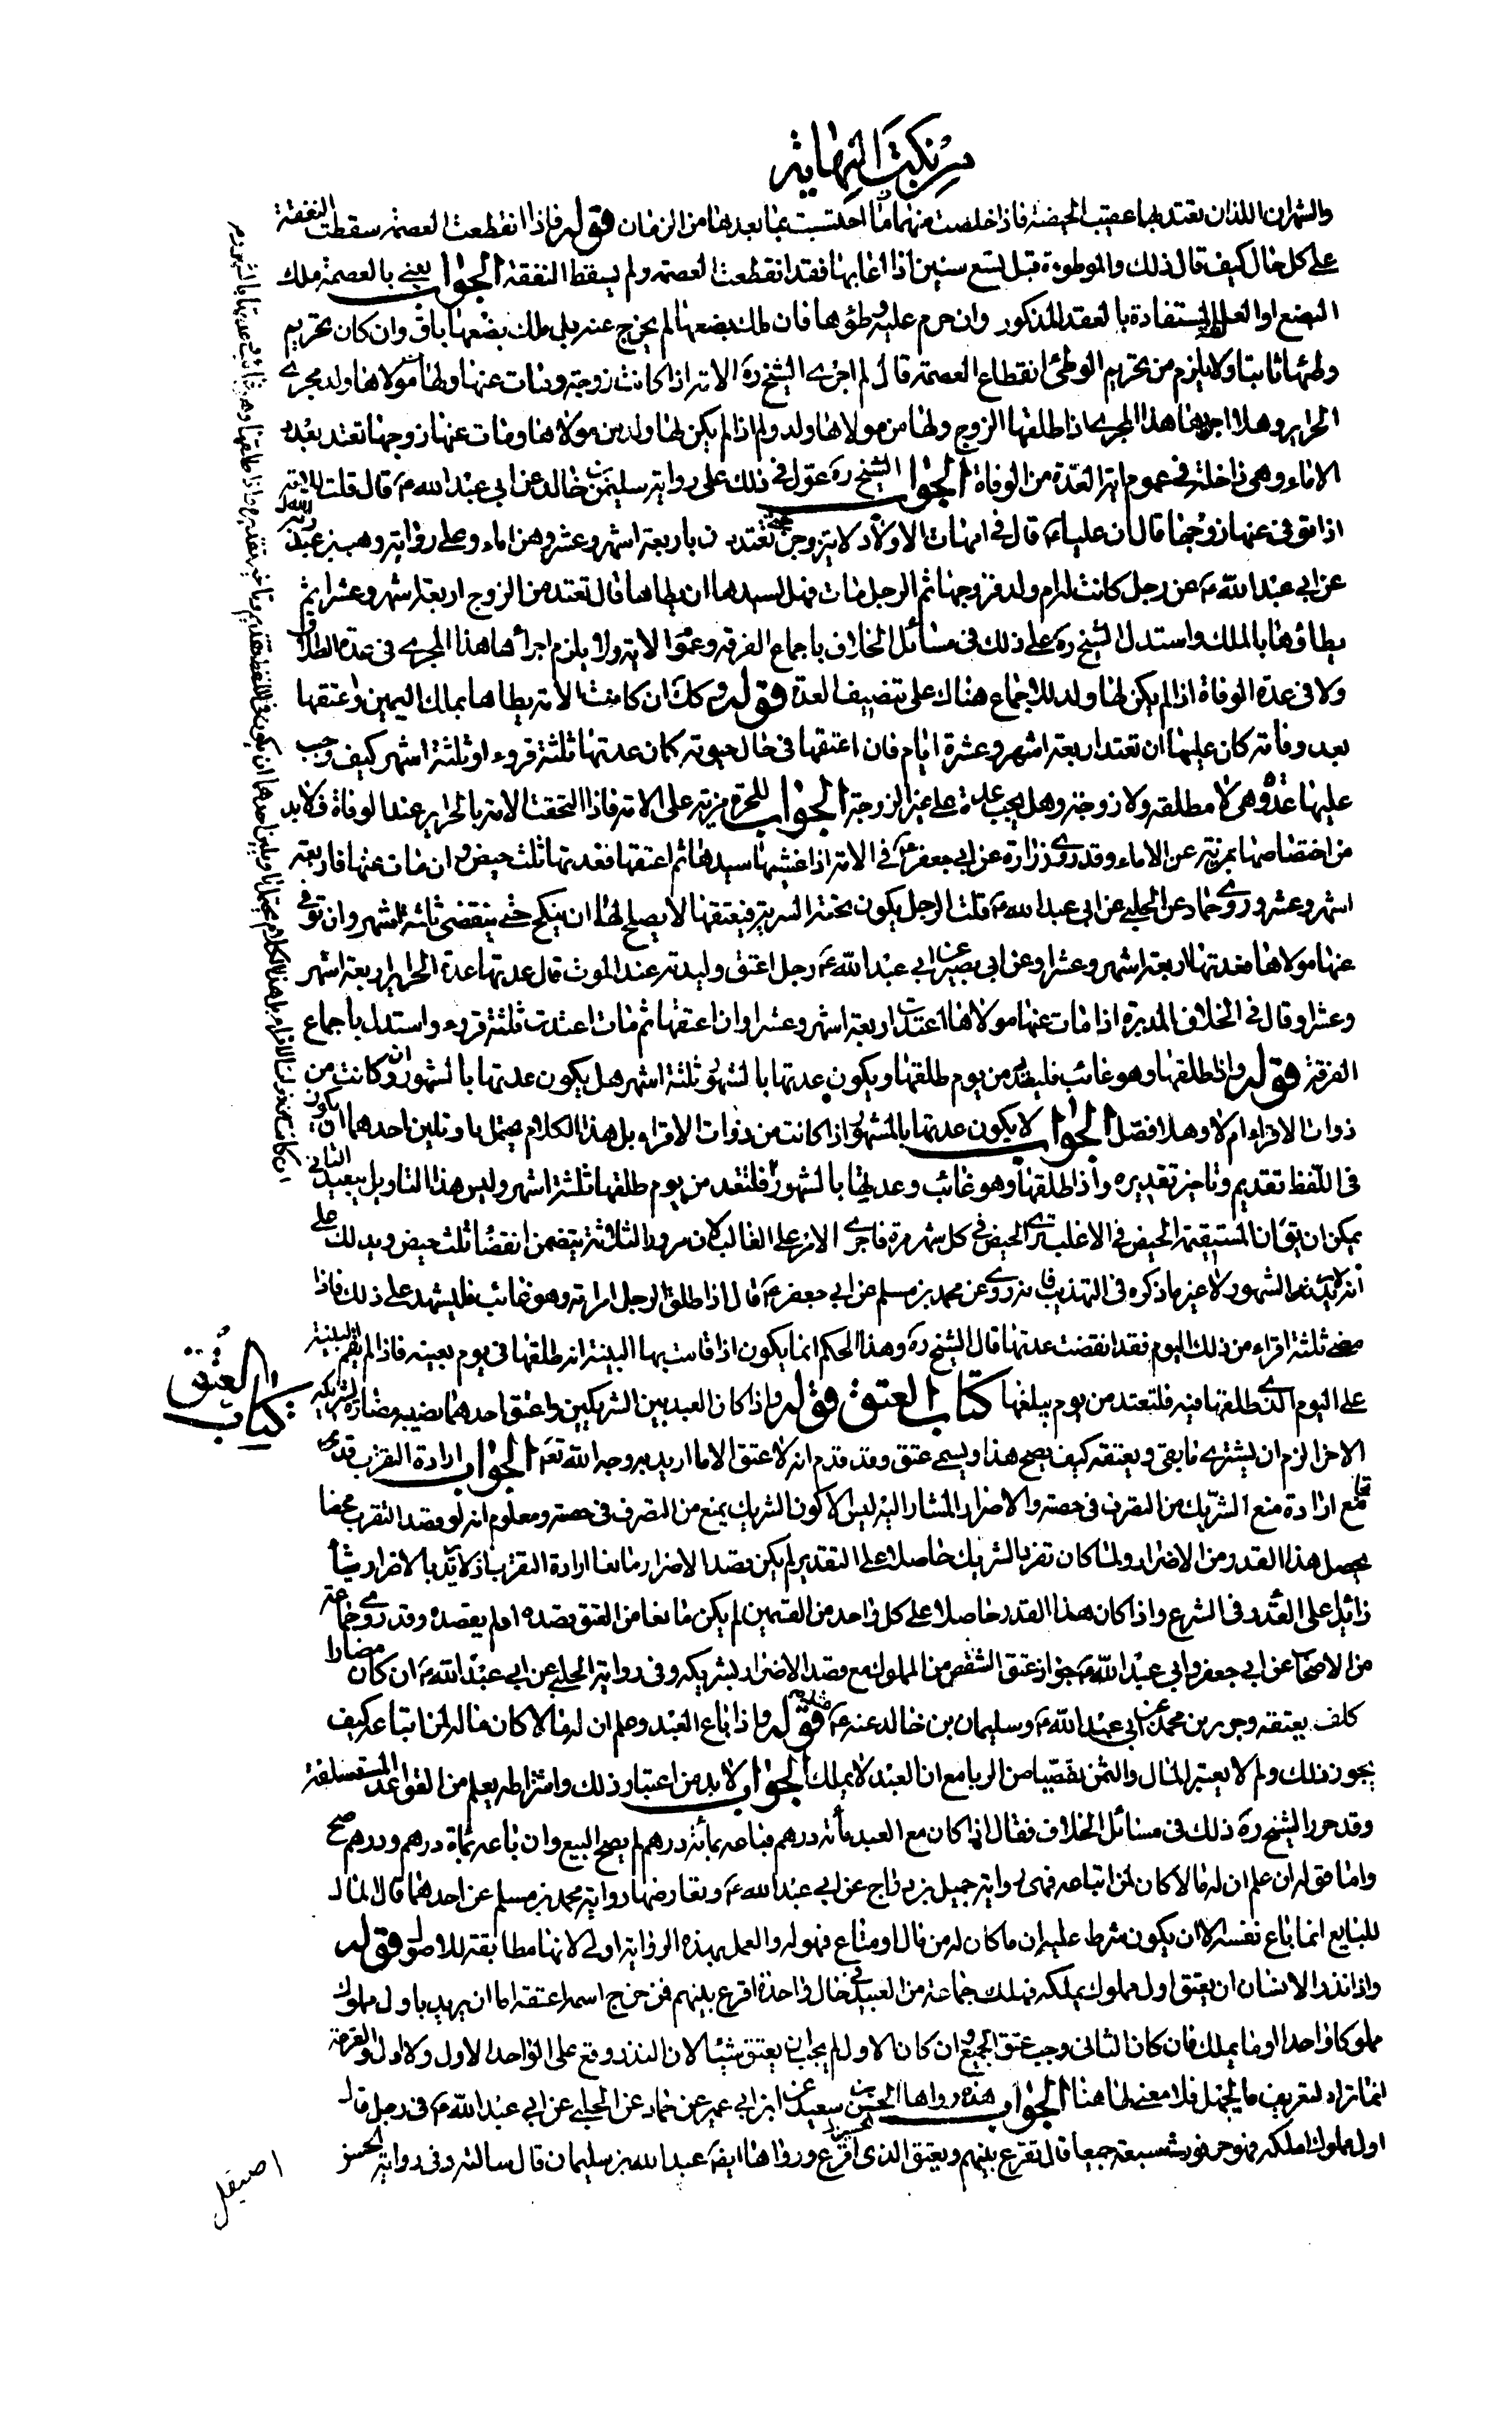 من نكت النهاية
والشهران اللذان تعتد بهما عقيب الحيضة فاذا خلصت منهما ما احتسبت بما بعدها من الزمان قوله فاذا انقطعت العصمة سقطت النفقة
على كل حال كيف قال ذلك والموطوءة قبل تسع سنين اذا اعابها فقد انقطعت العصمة ولم يسقط النفقة الجواب يعنى بالعصمة ملك
البضع او المستفادة بالعقد المذكور وان حرم عليه وطؤها فان ملك بضعها لم يخرج عنه بلى ملك بضعها باق وان كان تحريم
وطئها ثابتا ولا يلزم من تحريم الوطئ انقطاع العصمة قال لم اجرى الشيخ ره الامة اذا كانت زوجة ومات عنها ولها من مولاها ولد مجرى
الحراير وهلا اجراها هذا المجرى اذا طلقها الزوج ولها من مولاها ولد ولم اذا لم يكن لها ولد من مولاها ومات عنها زوجها تعتد بعدة
الاماء وهى داخلة فى عموم اية العدة من الوفاة الجواب الشيخ ره عول فى ذلك على رواية سليمن بن خالد عن ابى عبد الله ع قال قلت للامة
اذا توفى عنها زوجها قال ان عليا ع قال فى امهات الاولاد لا يتزوجن حتى تعتدن باربعة اشهر وعشر وهن اماء وعلى رواية وهب بن عبد ربه
عن ابى عبد الله ع عن رجل كانت له ام ولد فزوجها ثم الرجل مات فهل لسيدها ان يطاها قال تعتد من الزوج اربعة اشهر وعشرا ثم
يطاؤها بالملك واستدل الشيخ ره على ذلك فى مسائل الخلاف باجماع الفرقة وعموم الاية ولا يلزم اجراها هذا المجرى فى عدة الطلاق
ولا فى عدة الوفاة اذا لم يكن لها ولد للاجماع هناك على تنصيف العدة قوله وكك ان كانت الامة يطاها بملك اليمين واعتقها
بعد وفاته كان عليها ان تعتد اربعة اشهر وعشرة ايام فان اعتقها فى حال حيوته كان عدتها ثلثة قروء او ثلثة اشهر كيف وجب
عليها عدة وهى لا مطلقه ولا زوجة وهل يجب عدة على غير الزوجة الجواب للحرة مزية على الامة فاذا التحقت الامة بالحراير عند الوفاة فلا بد
من اختصاصها بمزية عن الاماء وقد روى زرارة عن ابى جعفر ع فى الامة اذا غشيها سيدها ثم اعتقها فعدتها ثلث حيض وان مات عنها فاربعة
اشهر وعشر وروى حماد عن الحلبى عن ابى عبد الله ع قلت الرجل يكون تحته السرية فيعتقها لا يصلح لها ان ينكح حتى ينقضى ثلثة اشهر وان توفى
عنها مولاها فعدتها اربعة اشهر وعشرا وعن ابى بصير عن ابى عبد الله ع رجل اعتق وليدته عند الموت قال عدتها عدة الحراير اربعة اشهر
وعشرا وقال فى الخلاف المدبرة اذا مات عنها مولاها اعتدت اربعة اشهر وعشرا وان اعتقها ثم مات اعتدت ثلثة قروء واستدل باجماع
الفرقة قوله واذا طلقها وهو غائب فليعتد من يوم طلقها ويكون عدتها بالشهور ثلثة اشهر هل يكون عدتها بالشهور وان كانت من
ذوات الاقراء ام لا وهلا فصل الجواب لا يكون عدتها بالشهور اذا كانت من ذوات الاقراء بل هذا الكلام يحتمل تاويلين احدهما ان يكون
فى اللفظ تقديم وتاخير تقديره واذا طلقها وهو غائب وعدتها بالشهور فلتعتد من يوم طلقها ثلثة اشهر وليس هذا التاويل ببعيد الثانى
يمكن ان يق ان المستقيمة الحيض فى الاغلب ترى الحيض فى كل شهر مرة فاجرى الامر على الغالب لان مرور الثلاثة يتضمن انقضاء ثلث حيض ويدلك على
انه لا يريد الشهور لا غير ما ذكره فى التهذيب فانه روى عن محمد بن مسلم عن ابى جعفر ع قال اذا طلق الرجل امراته وهو غائب فليشهد على ذلك فاذا
مضى ثلثة اقراء من ذلك اليوم فقد انقضت عدتها قال الشيخ ره وهذا الحكم انما يكون اذا قامت بها البينة انه طلقها فى يوم بعينه فاذا لم يقم البينة
على اليوم الذى طلقها فيه فلتعتد من يوم يبلغها كتاب العتق قوله واذا كان العبد بين الشريكين واعتق احدهما نصيبه مضارة لشريكه
كتاب العتق
الاخر الزم ان يشترى ما بقى ويعتقه كيف يصح هذا ويسمى عتق وقد قدم انه لا عتق الا ما اريد به وجه الله تع الجواب ارادة التقرب قد
تجامع ارادة منع الشريك من التصرف فى حصته والاضرار المشار اليه ليس الا كون الشريك يمنع من التصرف فى حصته ومعلوم انه لو قصد التقرب محضا
يحصل هذا القدر من الاضرار ولما كان تضر الشريك حاصلا على التقدير لم يكن قصد الاضرار مانعا ارادة التقرب اذ لا يريد بالاضرار شيئا
زائدا على القدر فى الشرع واذا كان هذا القدر حاصلا على كل واحد من القسمين لم يكن مانعا من العتق قصده او لم يقصده وقد روى جماعة
من الاصحاب عن ابى جعفر وابى عبد الله ع جواز عتق الشقص من المملوك مع قصد الاضرار لشريكه وفى رواية الحلبى عن ابى عبد الله ع ان كان مضارا
كلف يعتقه وجرير بن محمد عن ابى عبد الله ع وسليمان بن خالد عنه ع قوله واذا باع العبد وعلم ان له مالا كان ماله لمن ابتاعه كيف
يجوز ذلك ولم لا يعتبر المال والثمن تفصيا من الربا مع ان العبد لا يملك الجواب لا بد من اعتبار ذلك واشتراطه يعلم من القواعد
وقد حرر الشيخ ره ذلك فى مسائل الخلاف فقال اذا كان مع العبد مأة درهم فباعه بمائة درهم لم يصح البيع وان باعه بماة درهم ودرهم صح
واما قوله ان علم ان له مالا كان لمن ابتاعه فهى رواية جميل بن دراج عن ابى عبد الله ع وتعارضها رواية محمد بن مسلم عن احدهما قال المال
للبايع انما باع نفسه الا ان يكون شرط عليه ان ما كان له من مال او متاع فهو له والعمل بهذه الرواية اولى لانها مطابقة للاصول قوله
واذا نذر الانسان ان يعتق اول مملوك يملكه فملك جماعة من العبيد فى حال واحدة اقرع بينهم فمن خرج اسمه اعتقه اما ان يريد باول مملوك
مملوكا واحدا او ما يملك فان كان الثانى وجب عتق الجميع وان كان الاول لم يجب ان يعتق شيئا لان النذر وقع على الواحد الاول ولا اول والقرعة
انما تراد لتعريف ما يجهل فلا معنى لها هنا الجواب هذه رواها الحسين بن سعيد عن ابن ابى عمير عن حماد عن الحلبى عن ابى عبد الله ع فى رجل قال
اول مملوك املكه فهو حر فورث سبعة جميعا قال تقرع بينهم ويعتق الذى اقرع ورواها ايضا عبد الله بن سليمان قال سالته وفى رواية الحسن